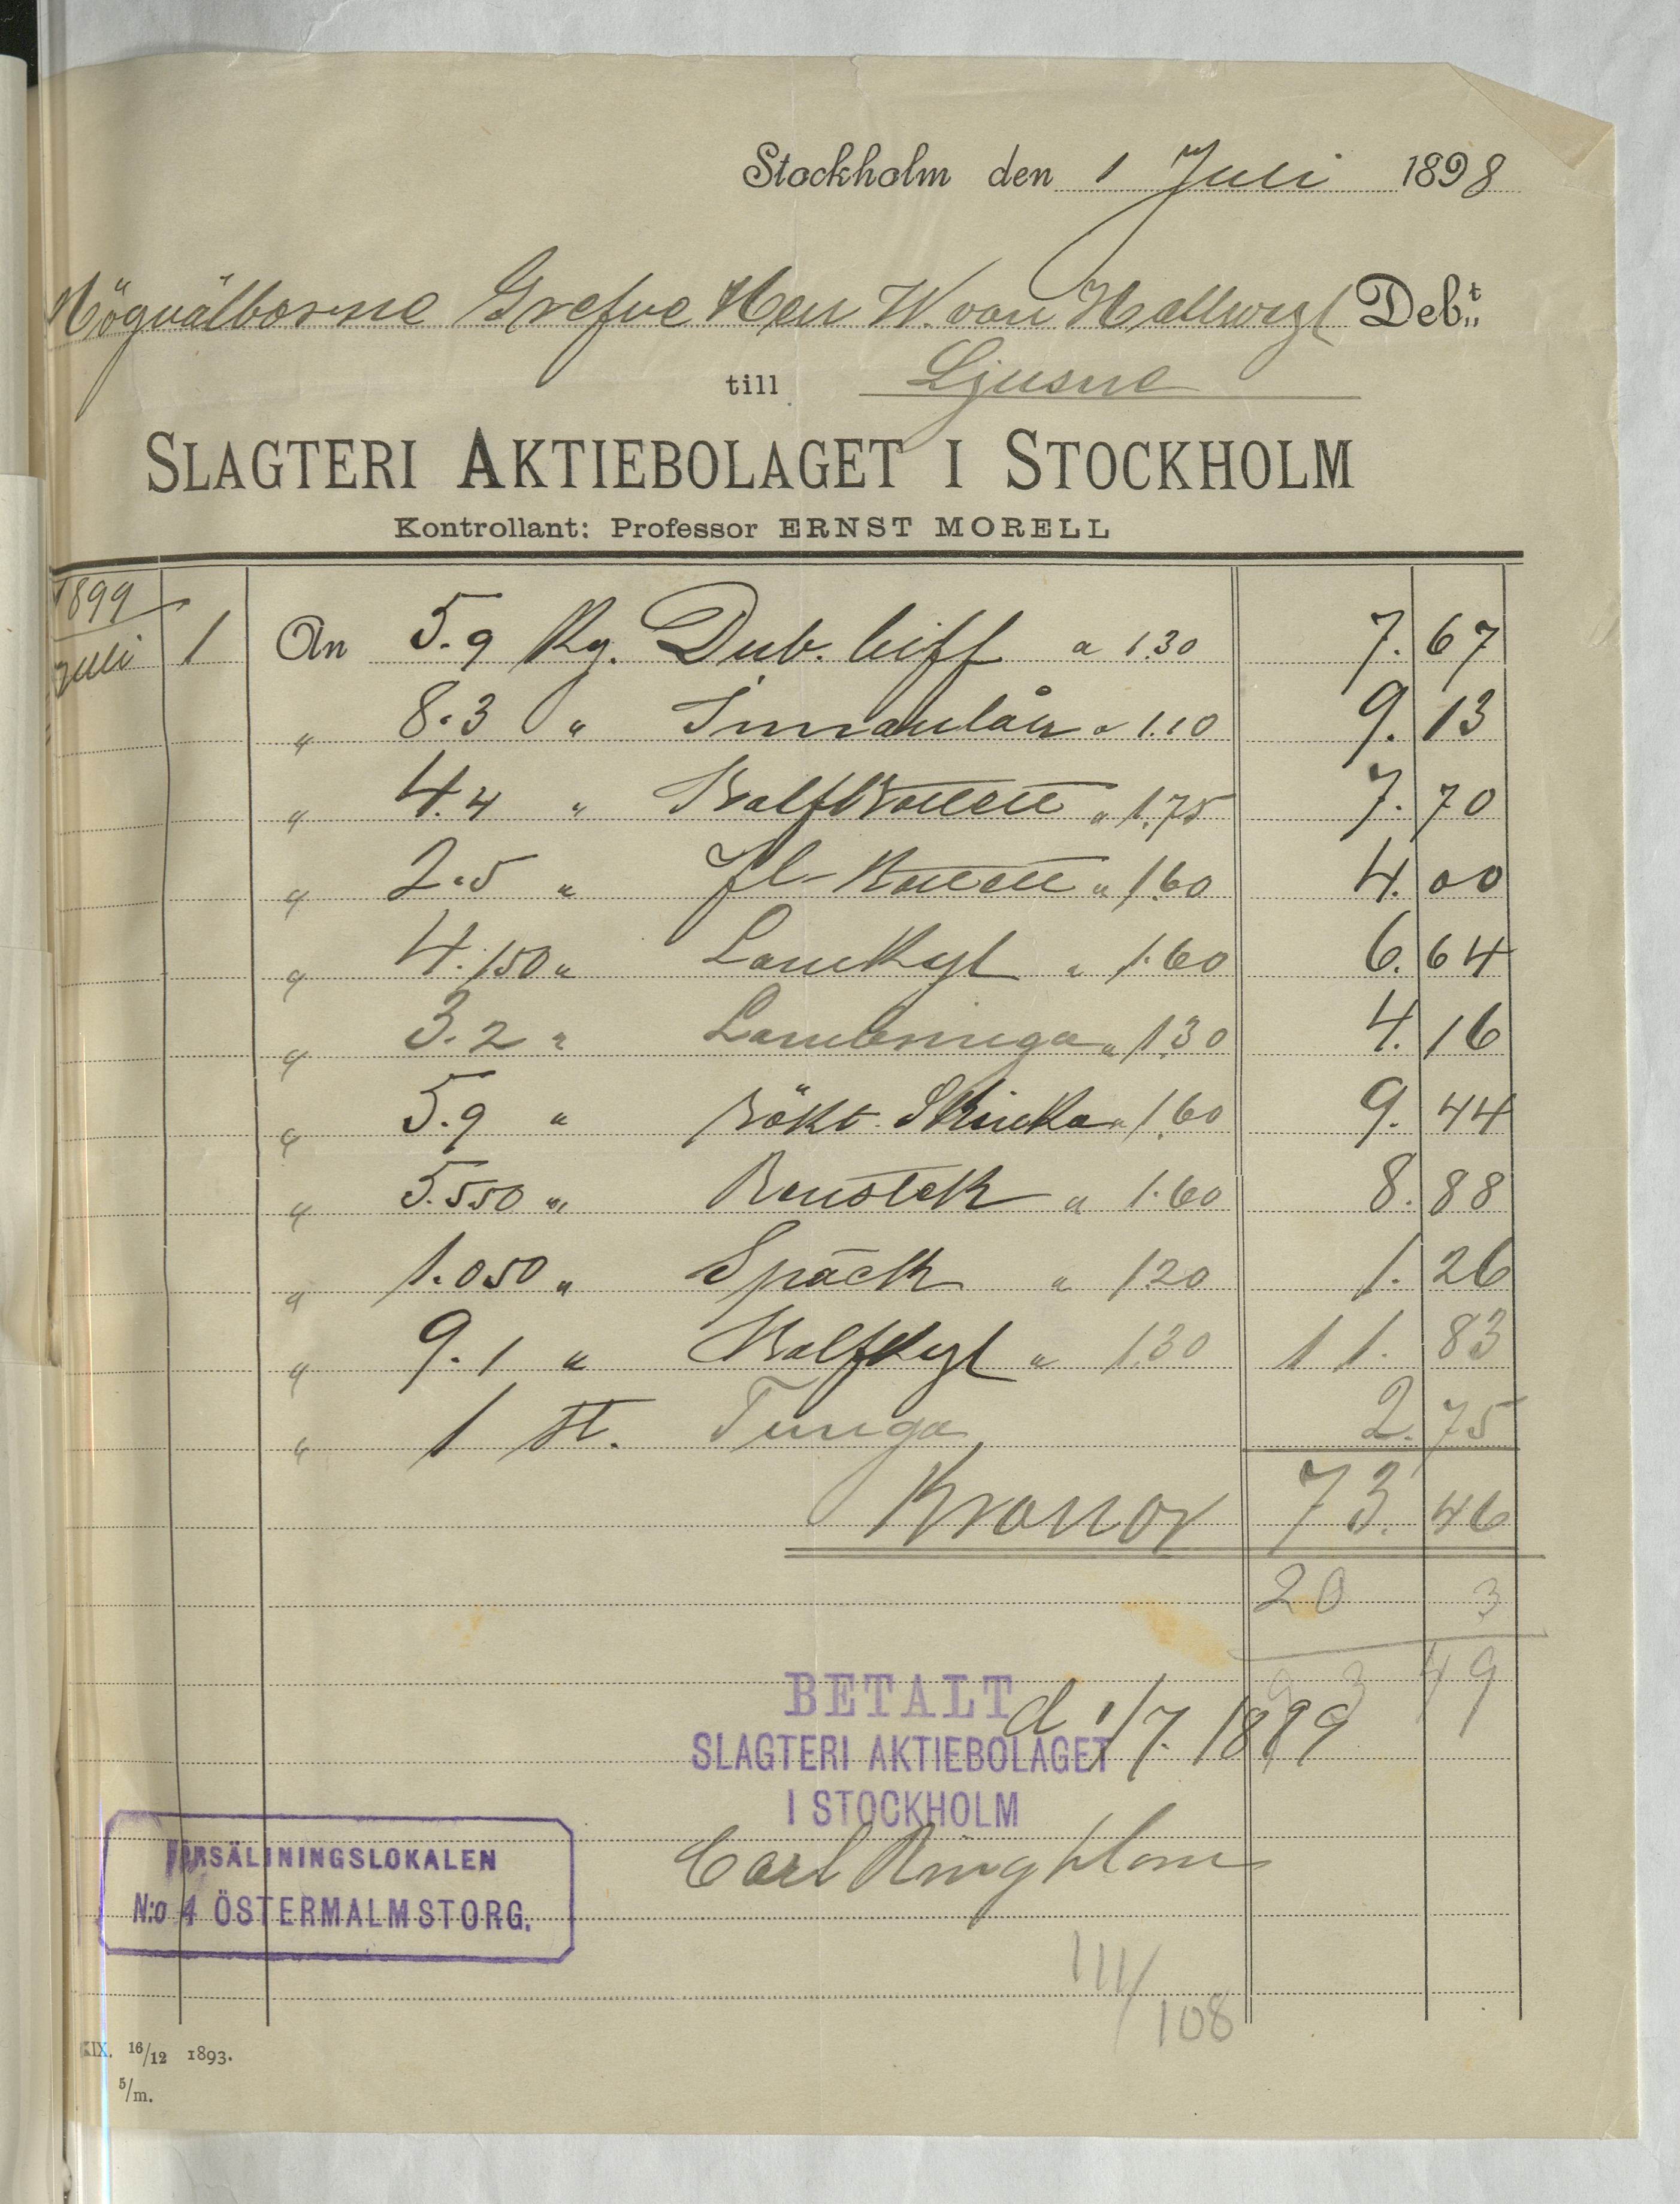 Stockholm den 1 Juli 1898
Högvälborne Grefve Herr W. von Hallwyl Deb:t
till Ljusne
SLAGTERI AKTIEBOLAGET I STOCKHOLM
Kontrollant: Professor ERNST MORELL
1899
Juli 1 An 5.9 Kg. Dub. biff a 1.30 7.67
" 8.3 " Innanlår " 1.10 9.13
" 4.4 " Kalfkotlett " 1.75 7.70
" 2.5 " Fl-Kotlett " 1.60 4.00
" 4.150 " Lamkyl " 1.60 6.64
" 3.2 " Lambringa " 1.30 4.16
" 5.9 " Rökt Skinka " 1.60 9.44
" 5.550 " Roustek " 1.60 8.88
" 1.050 " Späck " 1.20 1.26
" 9.1 " Kalfkyl " 1.30 11.83
" 1 st. Tunga 2.75
Kronor 73.46
20 3
93 49
BETALT
d 1/7. 1899
SLAGTERI AKTIEBOLAGET
I STOCKHOLM
Carl Ringblom
FÖRSÄLJNINGSLOKALEN
N:o 4 ÖSTERMALMSTORG.
111/108
XIX. 16/12 1893.
5/m.